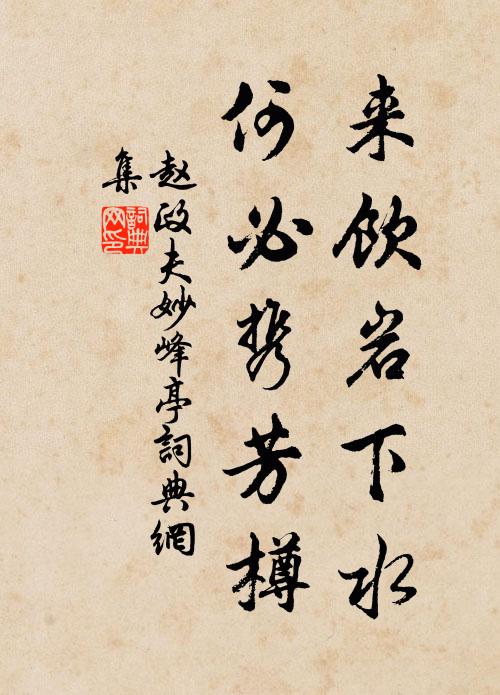 来饮岩下水
何必携芳樽
赵政夫妙峰亭詞典網
集
詞典网印